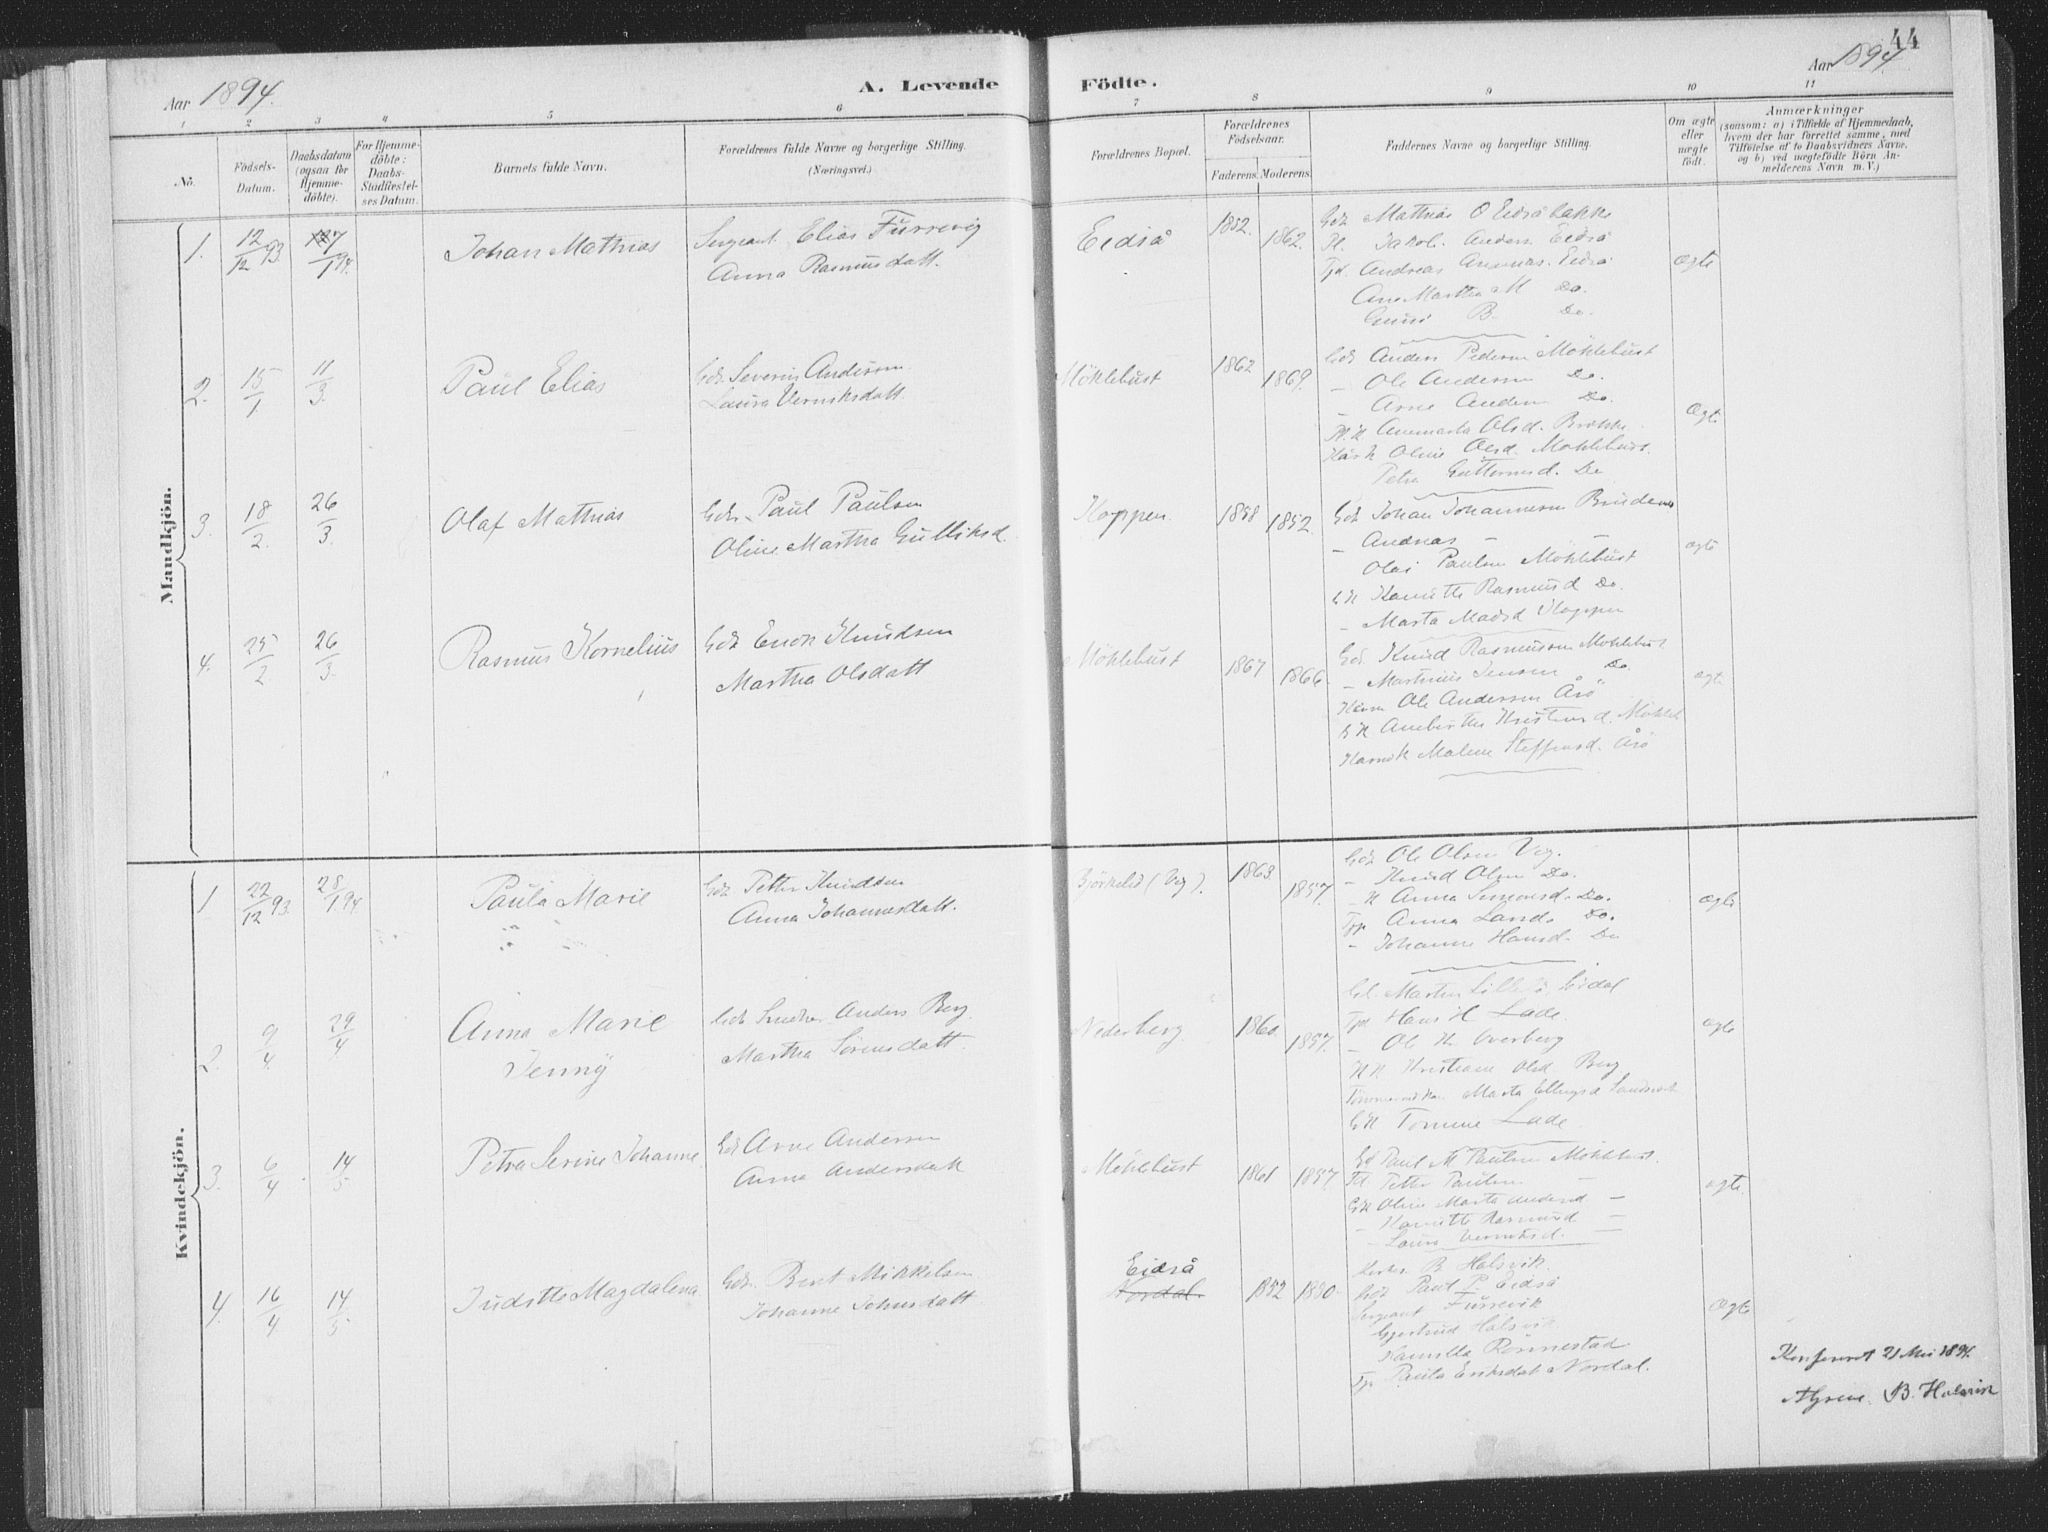 44
Aar 1894.
A. Levende Födte.
Aar 1894.
1 2 3 4 5 6 7 8 9 10 11
No.
Födsels-Datum.
Daabsdatum (ogsaa for Hjemmedöbte).
For Hjemmedöbte: Daabs-Stadfæstelses Datum.
Barnets fulde Navn.
Forældrenes fulde Navne og borgerlige Stilling. (Næringsvei.)
Forældrenes Bopæl.
Forældrenes Födselsaar.
Faderens. Moderens.
Faddernes Navne og borgerlige Stilling.
Om ægte eller uægte födt.
Anmærkninger
(saasom: a) i Tilfælde af Hjemmedaab, hvem der har forrettet samme, med Tilföielse af to Daabsvidners Navne, og b) ved uægtefödte Börn Anmelderens Navn m. V.)
Mandkjön.
1. 12/12 93. 7/1 94. Johan Mathias
Sergeant Elias Furrevig
Anna Rasmusdatt.
Eidså 1852. 1862.
Gdr Mathias O Eidsåbakke
Pl. Jakob Anders Eidså
Tjd. Andreas Eidså
Ane Martha M Do.
B. Do.
ægte
2. 15/1 11/3. Paul Elias
Gdr. Severin Andersen
Laura Verniksdatt.
Möklebust 1862 1869.
Gdr Anders Pedersen Möklebust
— Ole Andersen Do.
— Arne Anders Do.
Pl. K Anemarta Olsd.
Olsd. Möklebust.
Petra Guttormsd. Do
Ægte
3. 18/2. 26/3. Olaf Mathias
Gdr. Paul Paulsen
Oline Martha Gulliksd.
Koppen. 1858 1852.
Gdr Johan Johannesen
— Andreas —
Olai Paulsen Möklebust
GK Rasmusd Do.
— Marta Madsd Koppen
ægte
4. 25/2. 26/3. Rasmus Kornelius
Gdr Enok Knudsen
Martha Olsdatt
Möklebust 1867 1866.
Gdr. Knud Rasmussen Möklebust
— Martinus Jensen Do
Ole Andersen Årö
GK Aneberthe
Malene Steffensd. Årö
ægte
Kvindekjön.
1 22/12 93. 28/1 94. Paula Marie
Gdr Petter Knudsen
Anna Johannesdatt.
Björkelid (Vig). 1863. 1857.
Gdr Ole Olsen Vig.
— Knud Olsen Do.
— K Anna Simonsd. Do.
Tjp. Anna Lands Do.
— Johanne Hansd. Do
ægte
2. 9/4. 29/4 Anna Marie
Jenny
Gdr Anders Berg.
Martha Sörensdatt.
Nederberg 1860 1857.
Martin
Tjd. Hans H Lade.
— Ole H. Overberg
Olsd. Berg
Marta
GK Tomine Lade.
ægte
3. 6/4 14/5 Petra Serine Johanne
Gdr Arne Andersen
Anna Andersdatt
Möklebust 1861 1857.
Gd Paul M Paulsen Möklebust.
Petter Paulsen —
GK Oline Marta Andersd —
— Rasmusd —
— Laura
ægte.
4. 16/4 14/5. Juditte Magdalena
Gdr. Bent Mikkelsen
Johanne Johnsdatt
Eidså
Nordal. 1852 1850.
B Halsvik.
Gdr Paul P Eidså
Sergeant Furrevik
Gjertrud Halsvik
Kamilla Rönnestad
Tjp Paula Eriksdat Nordal.
Ægte
Konfereret 21 Mai 1894.
B. Halsvik